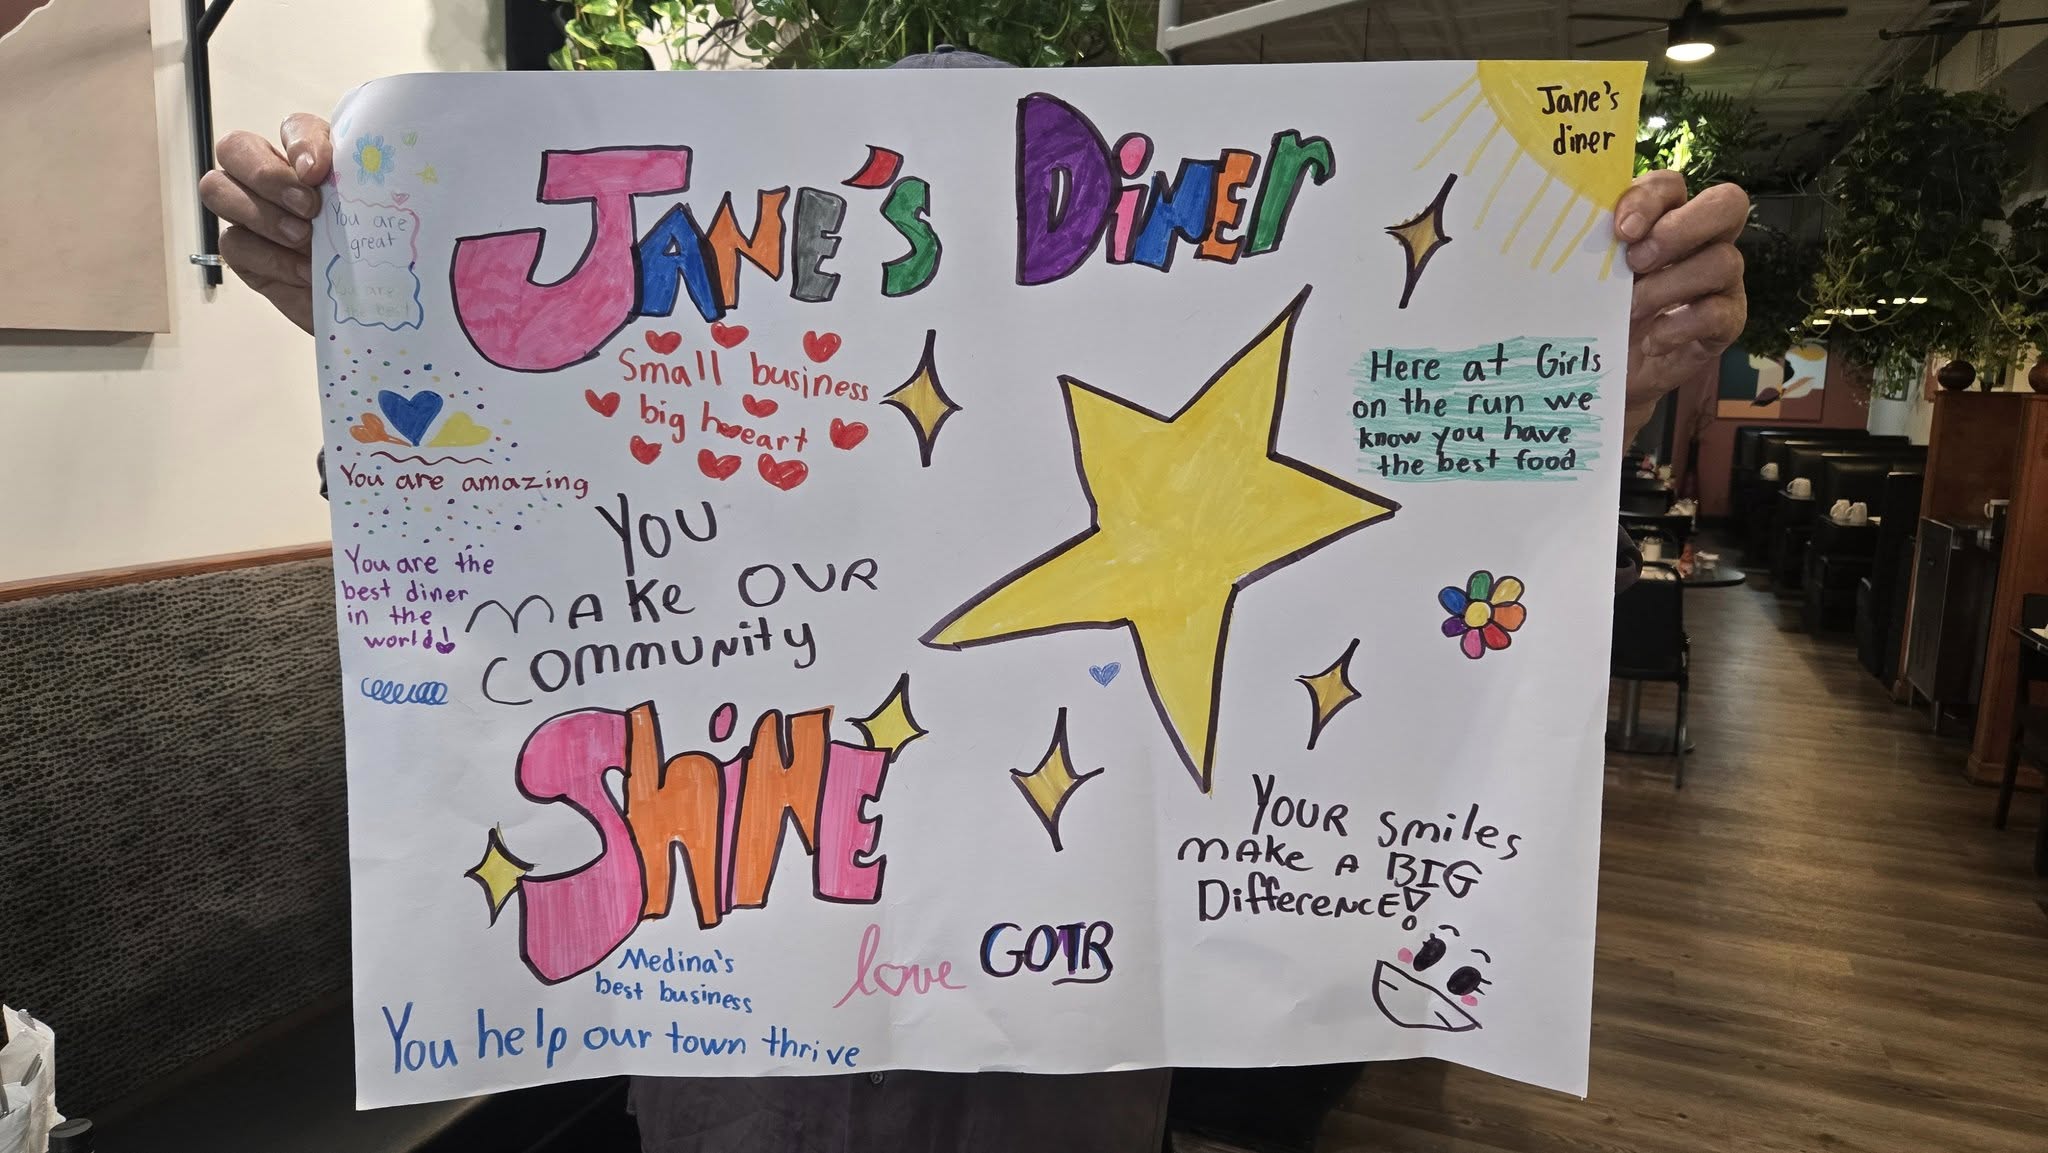 JANE'S DiNEr
Jane's
diner
You are
great
You are
the best
Small business
big heart
Here at Girls
on the run we
know you have
the best food
You are amazing
YOU
MAKe OUR
COMMUNity
ShiNE
You are the
best diner
in the
world!
YOUR smiles
MAKe A BIG
DifferENCE!
love GOTR
Medina's
best business
You help our town thrive